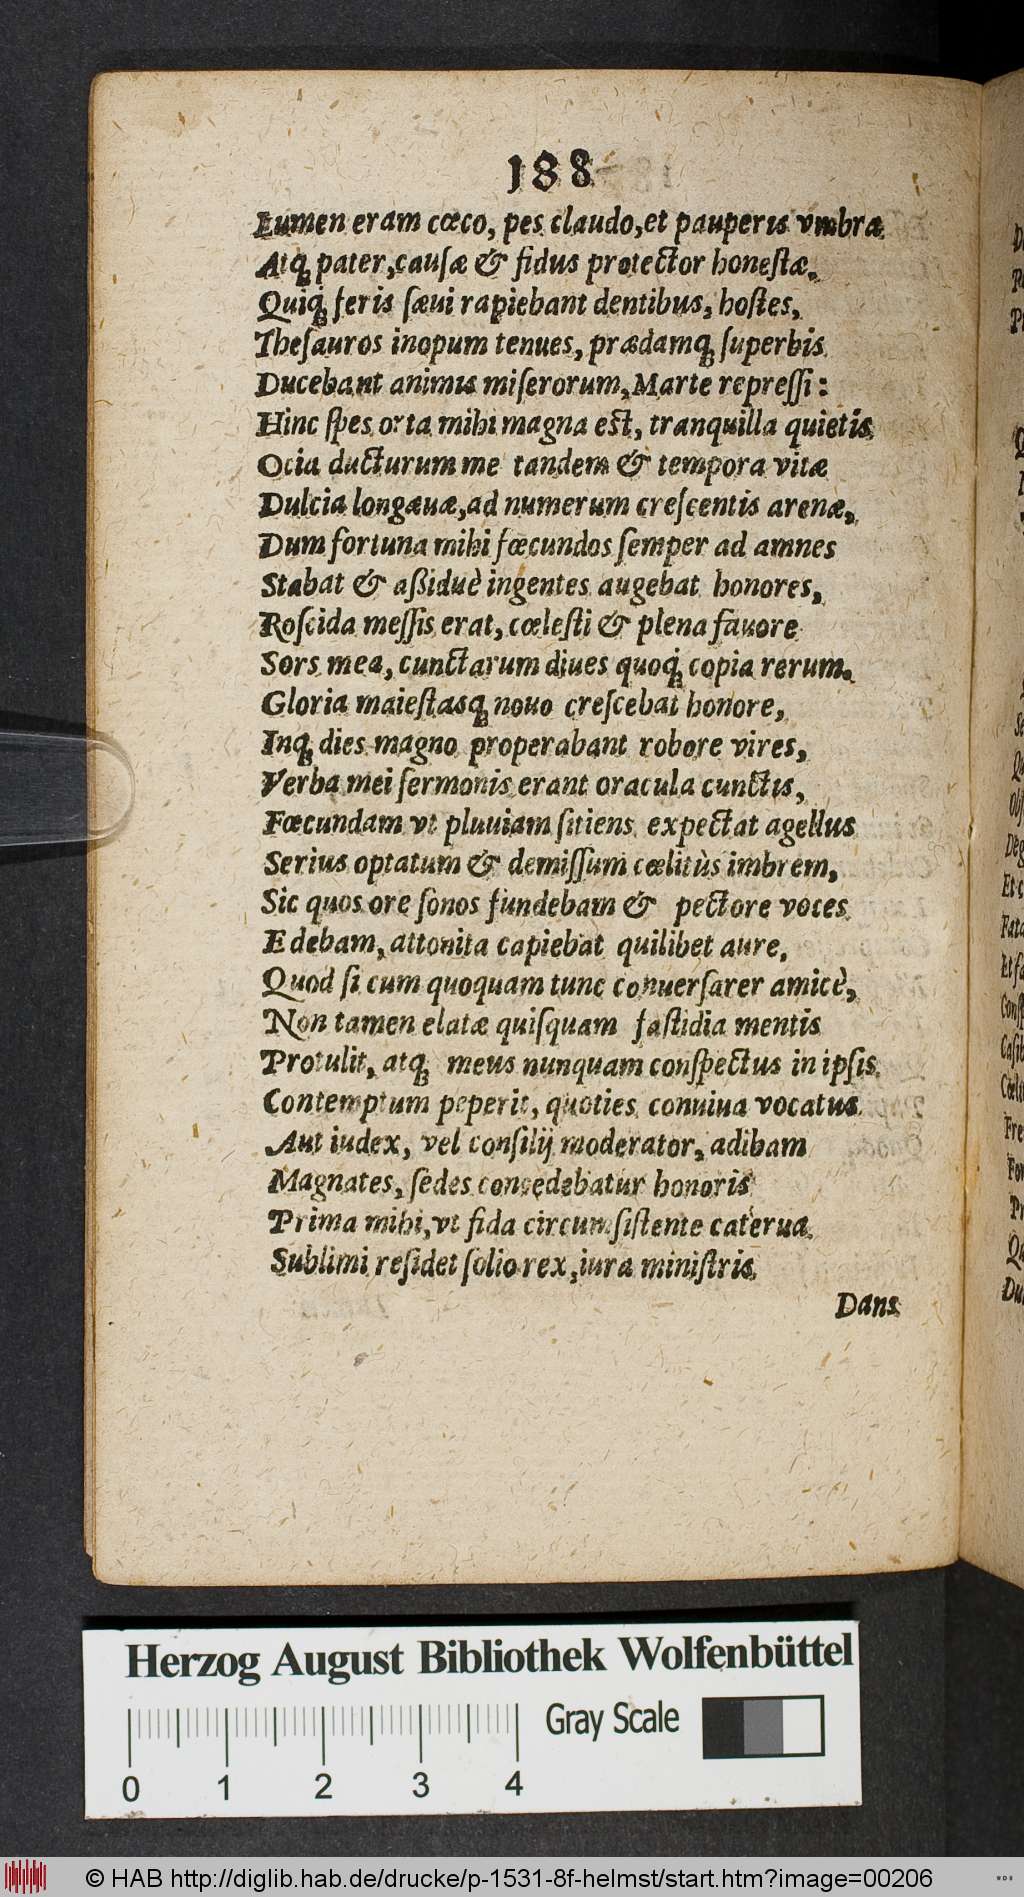 188
Lumen eram cœco, pes claudo, et pauperis vmbra
Atq; pater, causæ & fidus protector honestæ.
Quiq; feris sæui rapiebant dentibus, hostes,
Thesauros inopum tenues, prædamq; superbis
Ducebant animis miserorum, Marte repressi:
Hinc spes orta mihi magna est, tranquilla quietis
Ocia ducturum me tandem & tempora vitæ
Dulcia longæuæ, ad numerum crescentis arenæ,
Dum fortuna mihi fœcundos semper ad amnes
Stabat & aßiduè ingentes augebat honores,
Roscida messis erat, cœlesti & plena fauore
Sors mea, cunctarum diues quoq; copia rerum.
Gloria maiestasq; nouo crescebat honore,
Inq; dies magno properabant robore vires,
Verba mei sermonis erant oracula cunctis,
Fœcundam vt pluuiam sitiens expectat agellus
Serius optatum & demissum cœlitùs imbrem,
Sic quos ore sonos fundebam & pectore voces
Edebam, attonita capiebat quilibet aure,
Quod si cum quoquam tunc conuersarer amicè,
Non tamen elatæ quisquam fastidia mentis
Protulit, atq; meus nunquam conspectus in ipsis
Contemptum peperit, quoties conuiua vocatus
Aut iudex, vel consilij moderator, adibam
Magnates, sedes concedebatur honoris
Prima mihi, vt fida circumsistente caterua
Sublimi residet solio rex, iura ministris
Dans
Herzog August Bibliothek Wolfenbüttel
Gray Scale
0 1 2 3 4
© HAB http://diglib.hab.de/drucke/p-1531-8f-helmst/start.htm?image=00206